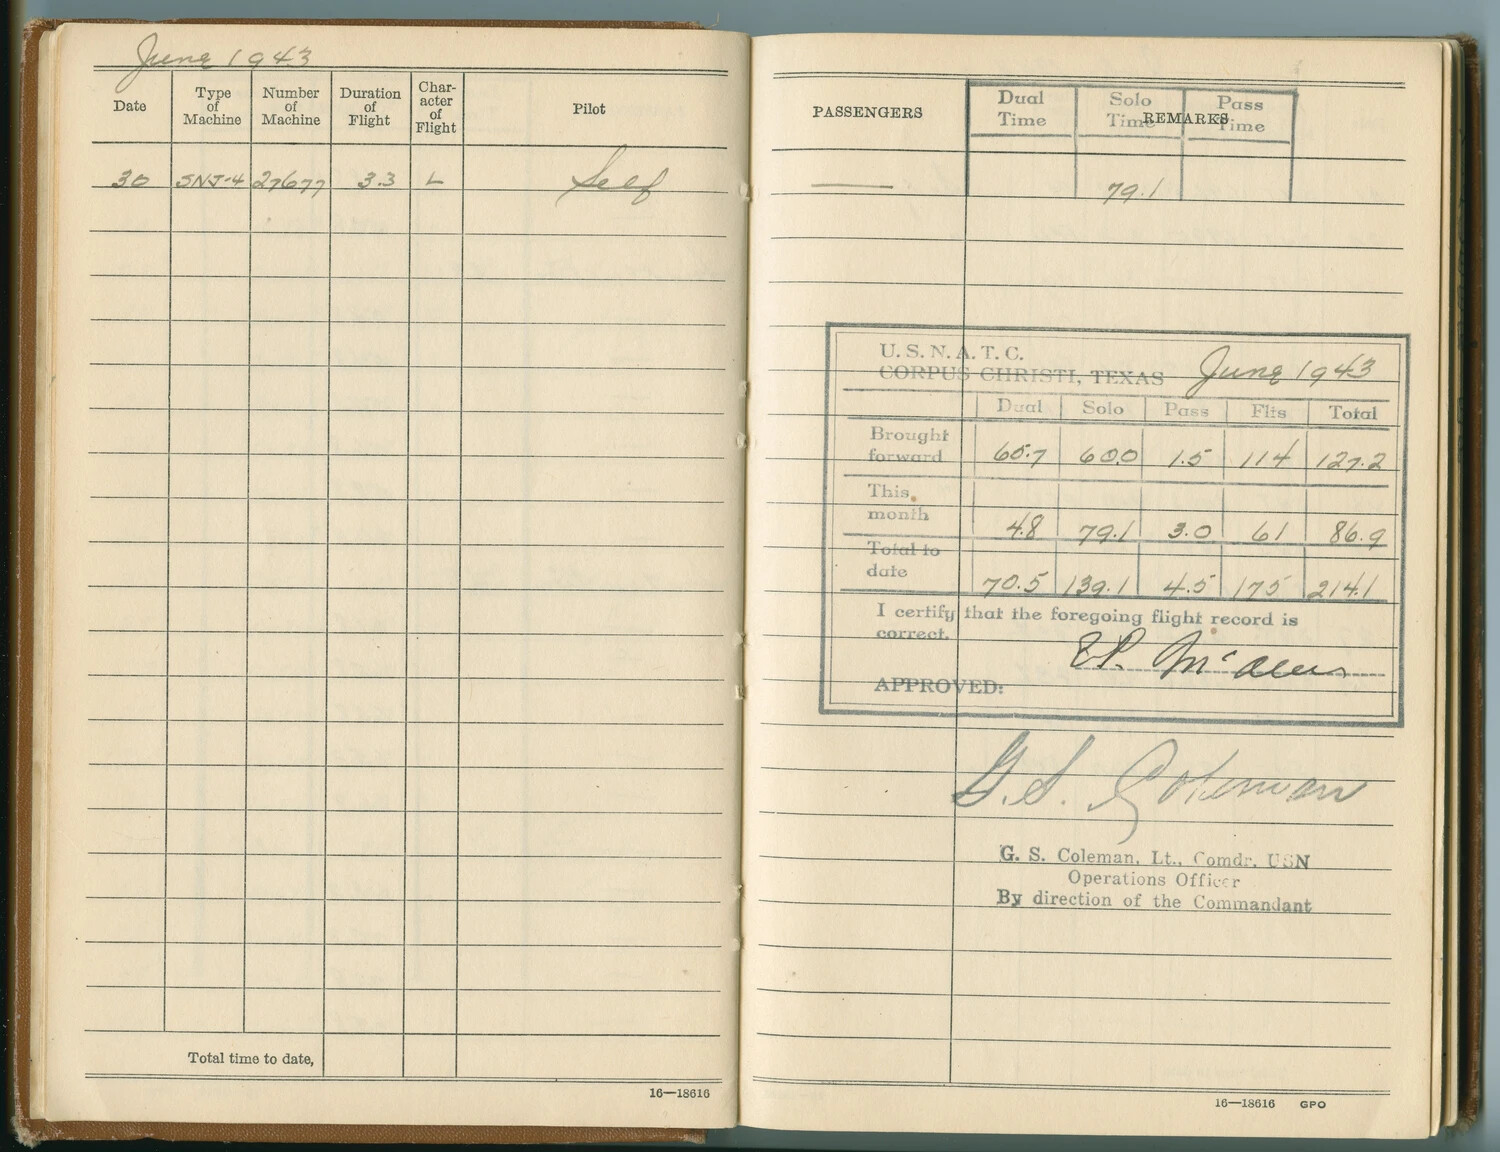 June 1943
Date
Type of Machine
Number of Machine
Duration of Flight
Char-acter of Flight
Pilot
30 SNJ-4 27677 3.3 L Self
Total time to date,
16—18616
PASSENGERS
REMARKS
Dual Time
Solo Time
Pass Time
— 79.1
U. S. N. A. T. C.
CORPUS CHRISTI, TEXAS June 1943
Dual Solo Pass Flts Total
Brought forward 65.7 60.0 1.5 114 127.2
This month 4.8 79.1 3.0 61 86.9
Total to date 70.5 139.1 4.5 175 214.1
I certify that the foregoing flight record is
correct.
APPROVED:
G. S. Coleman
G. S. Coleman, Lt., Comdr. USN
Operations Officer
By direction of the Commandant
16—18616 GPO